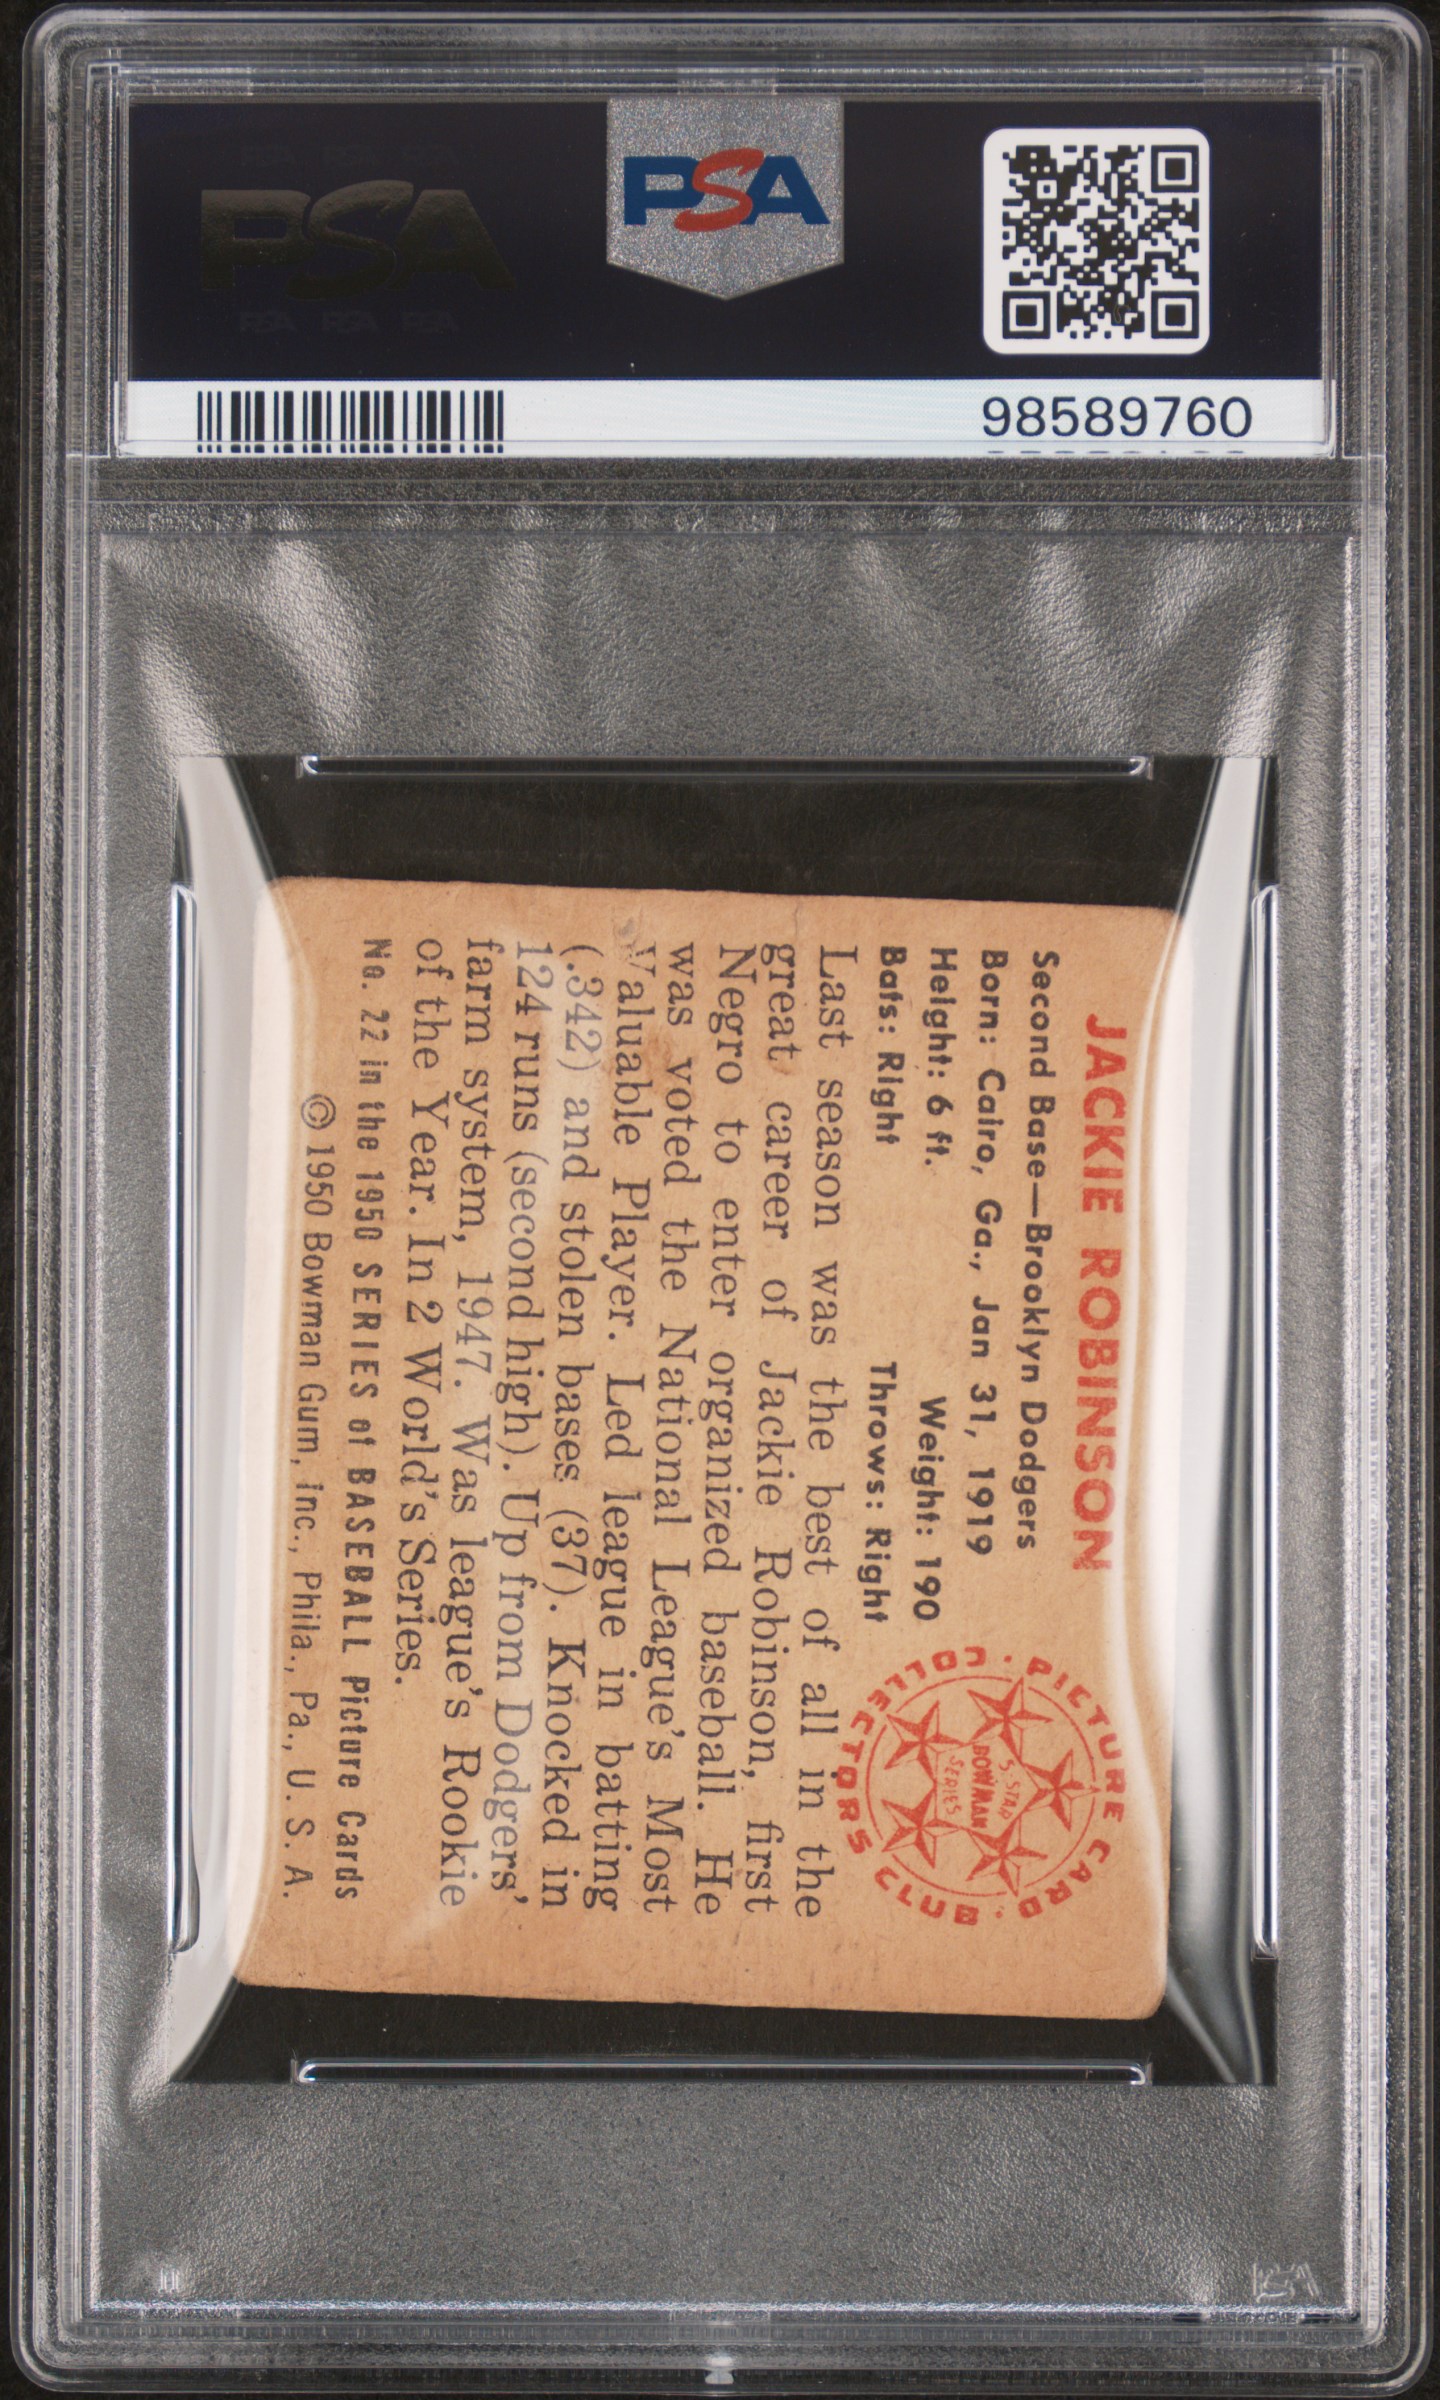 PSA
PSA PSA PSA
PSA
98589760
JACKIE ROBINSON
Second Base—Brooklyn Dodgers
Born: Cairo, Ga., Jan 31, 1919
Height: 6 ft. Weight: 190
Bats: Right Throws: Right
PICTURE CARD · CLUB · COLLECTORS ·
5-STAR
BOWMAN
SERIES
Last season was the best of all in the
great career of Jackie Robinson, first
Negro to enter organized baseball. He
was voted the National League's Most
Valuable Player. Led league in batting
(.342) and stolen bases (37). Knocked in
124 runs (second high). Up from Dodgers'
farm system, 1947. Was league's Rookie
of the Year. In 2 World's Series.
No. 22 in the 1950 SERIES of BASEBALL Picture Cards
© 1950 Bowman Gum, Inc., Phila., Pa., U. S. A.